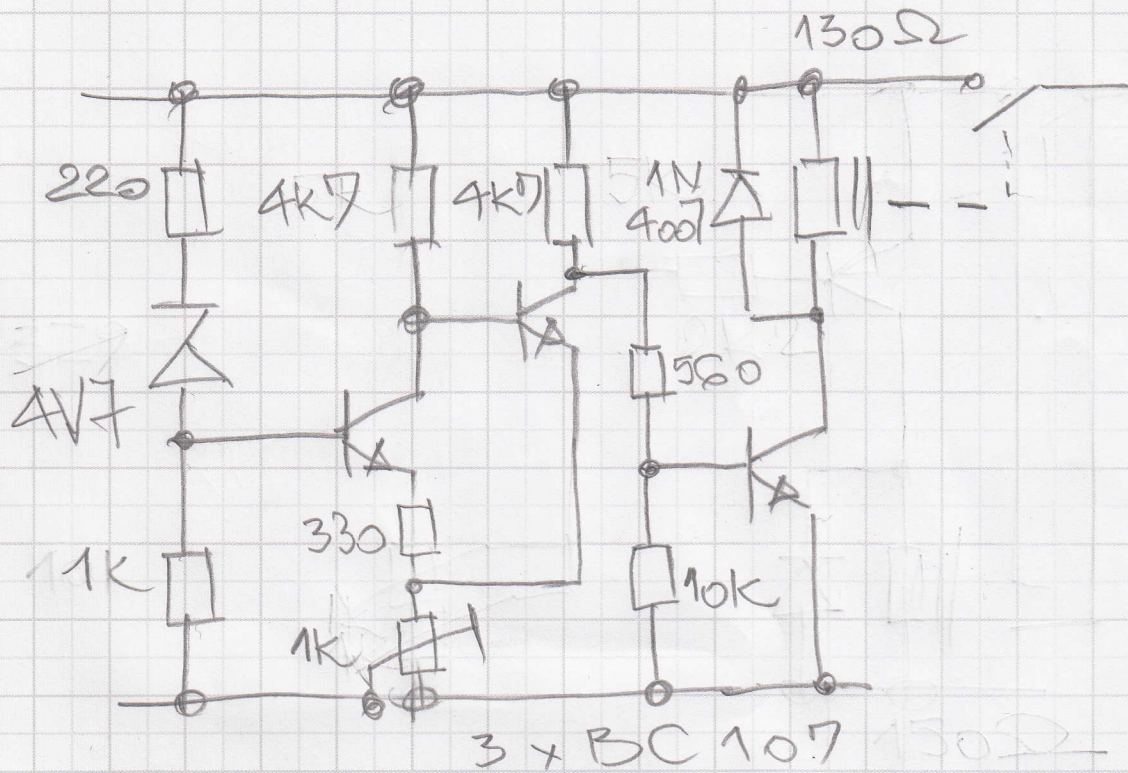 130Ω
220
4K7
4K7
1N
4007
4V7
560
330
1K
10K
1K
3 x BC 107